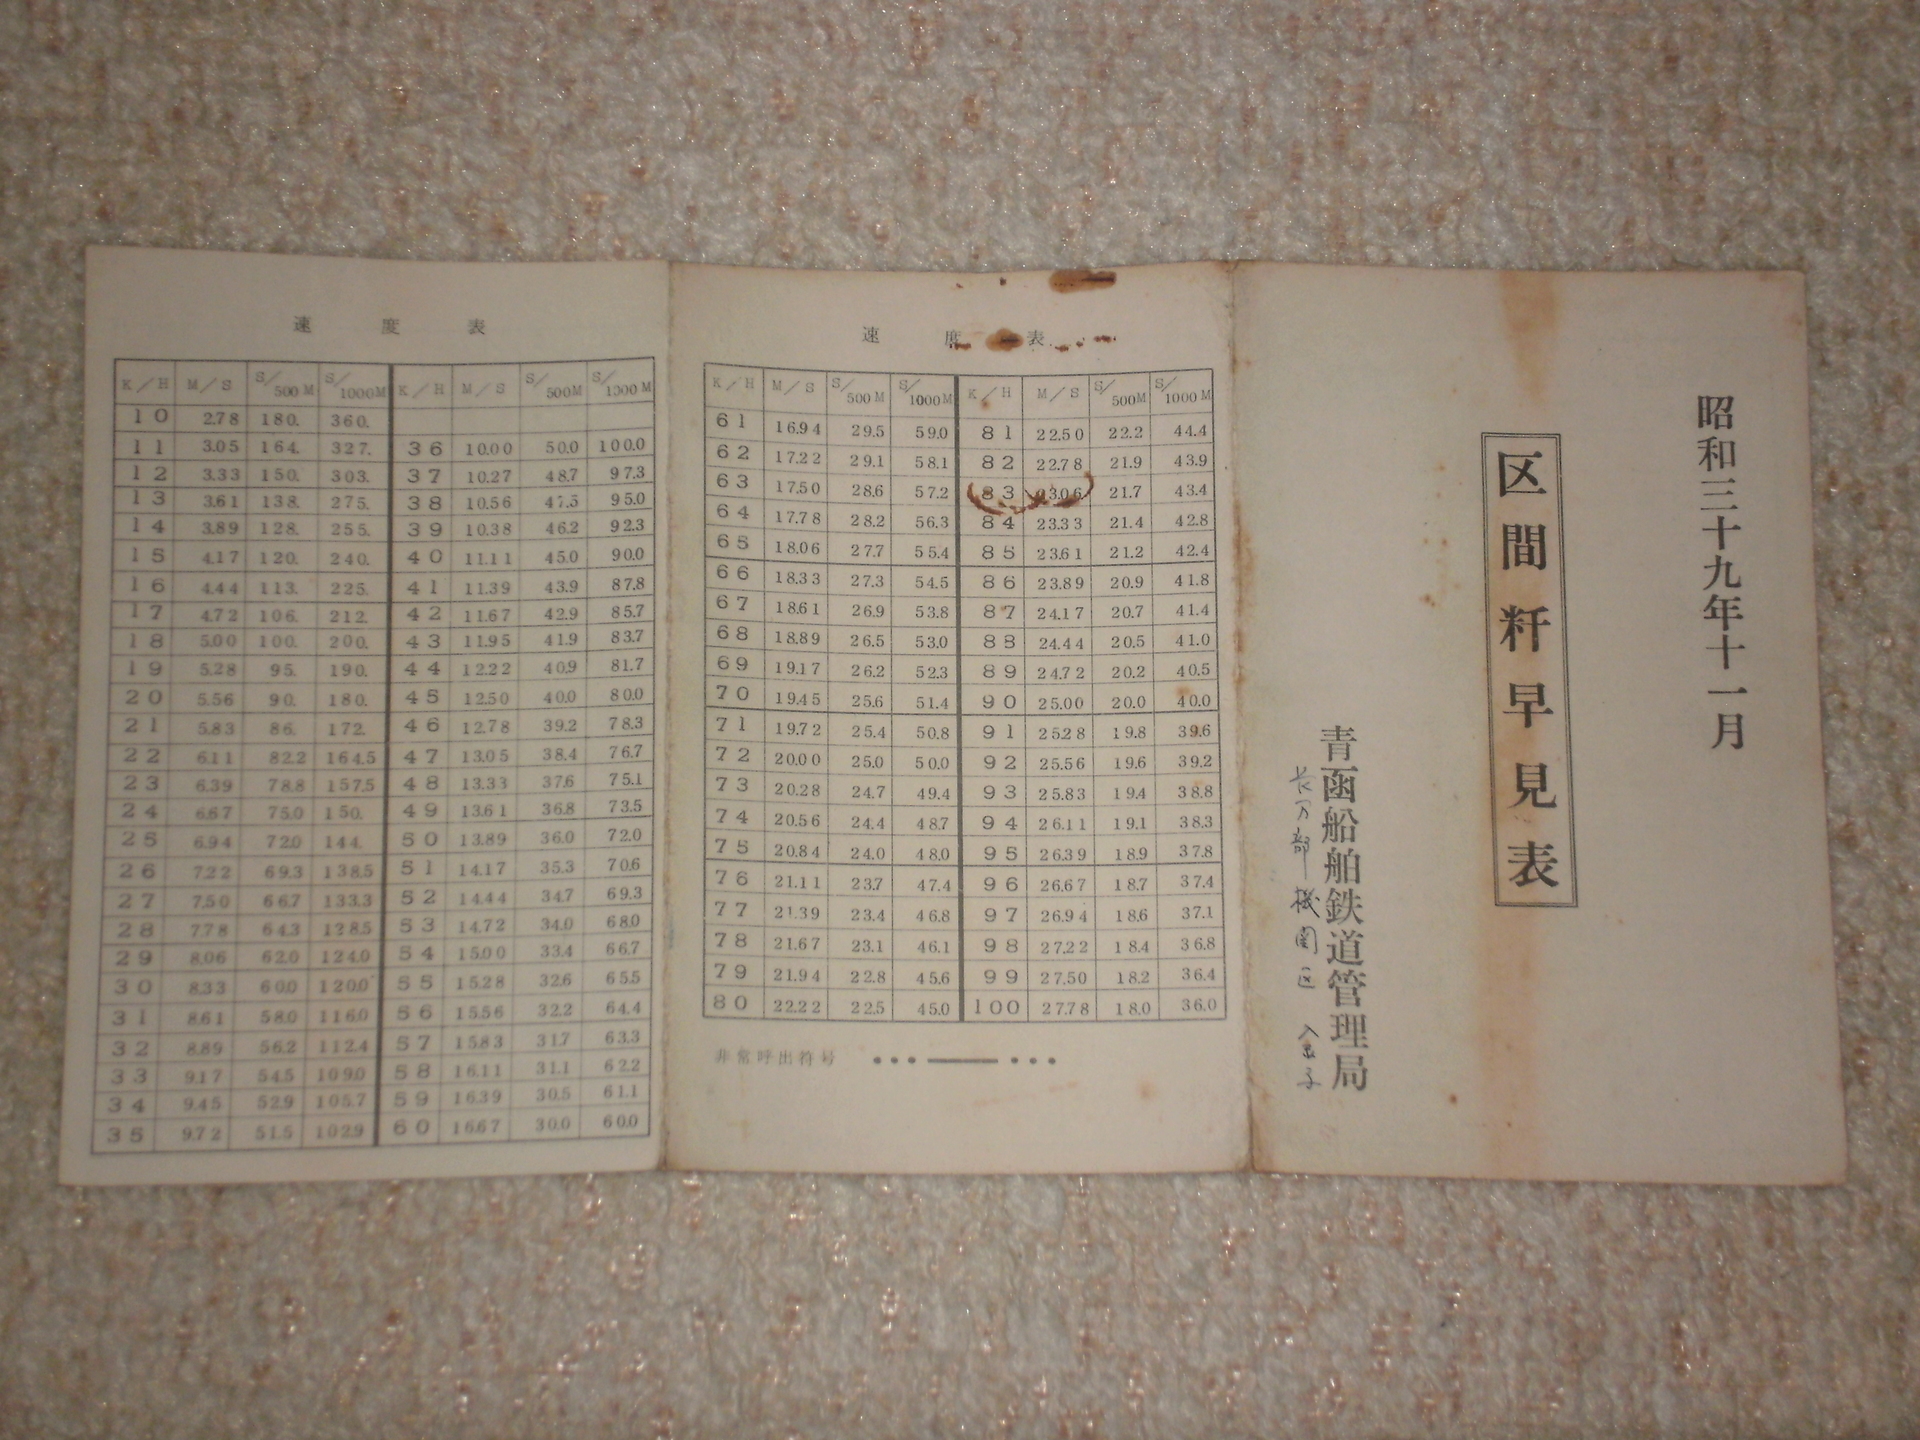 昭和三十九年十一月
区間粁早見表
青函船舶鉄道管理局
長万部機関区
速度表
K/H M/S S/500M S/1000M K/H M/S S/500M S/1000M
61 16.94 29.5 59.0 81 22.50 22.2 44.4
62 17.22 29.1 58.1 82 22.78 21.9 43.9
63 17.50 28.6 57.2 83 3.06 21.7 43.4
64 17.78 28.2 56.3 84 23.33 21.4 42.8
65 18.06 27.7 55.4 85 23.61 21.2 42.4
66 18.33 27.3 54.5 86 23.89 20.9 41.8
67 18.61 26.9 53.8 87 24.17 20.7 41.4
68 18.89 26.5 53.0 88 24.44 20.5 41.0
69 19.17 26.2 52.3 89 24.72 20.2 40.5
70 19.45 25.6 51.4 90 25.00 20.0 40.0
71 19.72 25.4 50.8 91 25.28 19.8 39.6
72 20.00 25.0 50.0 92 25.56 19.6 39.2
73 20.28 24.7 49.4 93 25.83 19.4 38.8
74 20.56 24.4 48.7 94 26.11 19.1 38.3
75 20.84 24.0 48.0 95 26.39 18.9 37.8
76 21.11 23.7 47.4 96 26.67 18.7 37.4
77 21.39 23.4 46.8 97 26.94 18.6 37.1
78 21.67 23.1 46.1 98 27.22 18.4 36.8
79 21.94 22.8 45.6 99 27.50 18.2 36.4
80 22.22 22.5 45.0 100 27.78 18.0 36.0
非常呼出符号 •••━━•••
速度表
K/H M/S S/500M S/1000M K/H M/S S/500M S/1000M
10 2.78 180. 360.
11 3.05 164. 327. 36 10.00 50.0 100.0
12 3.33 150. 303. 37 10.27 48.7 97.3
13 3.61 138. 275. 38 10.56 47.5 95.0
14 3.89 128. 255. 39 10.38 46.2 92.3
15 4.17 120. 240. 40 11.11 45.0 90.0
16 4.44 113. 225. 41 11.39 43.9 87.8
17 4.72 106. 212. 42 11.67 42.9 85.7
18 5.00 100. 200. 43 11.95 41.9 83.7
19 5.28 95. 190. 44 12.22 40.9 81.7
20 5.56 90. 180. 45 12.50 40.0 80.0
21 5.83 86. 172. 46 12.78 39.2 78.3
22 6.11 82.2 164.5 47 13.05 38.4 76.7
23 6.39 78.8 157.5 48 13.33 37.6 75.1
24 6.67 75.0 150. 49 13.61 36.8 73.5
25 6.94 72.0 144. 50 13.89 36.0 72.0
26 7.22 69.3 138.5 51 14.17 35.3 70.6
27 7.50 66.7 133.3 52 14.44 34.7 69.3
28 7.78 64.3 128.5 53 14.72 34.0 68.0
29 8.06 62.0 124.0 54 15.00 33.4 66.7
30 8.33 60.0 120.0 55 15.28 32.6 65.5
31 8.61 58.0 116.0 56 15.56 32.2 64.4
32 8.89 56.2 112.4 57 15.83 31.7 63.3
33 9.17 54.5 109.0 58 16.11 31.1 62.2
34 9.45 52.9 105.7 59 16.39 30.5 61.1
35 9.72 51.5 102.9 60 16.67 30.0 60.0